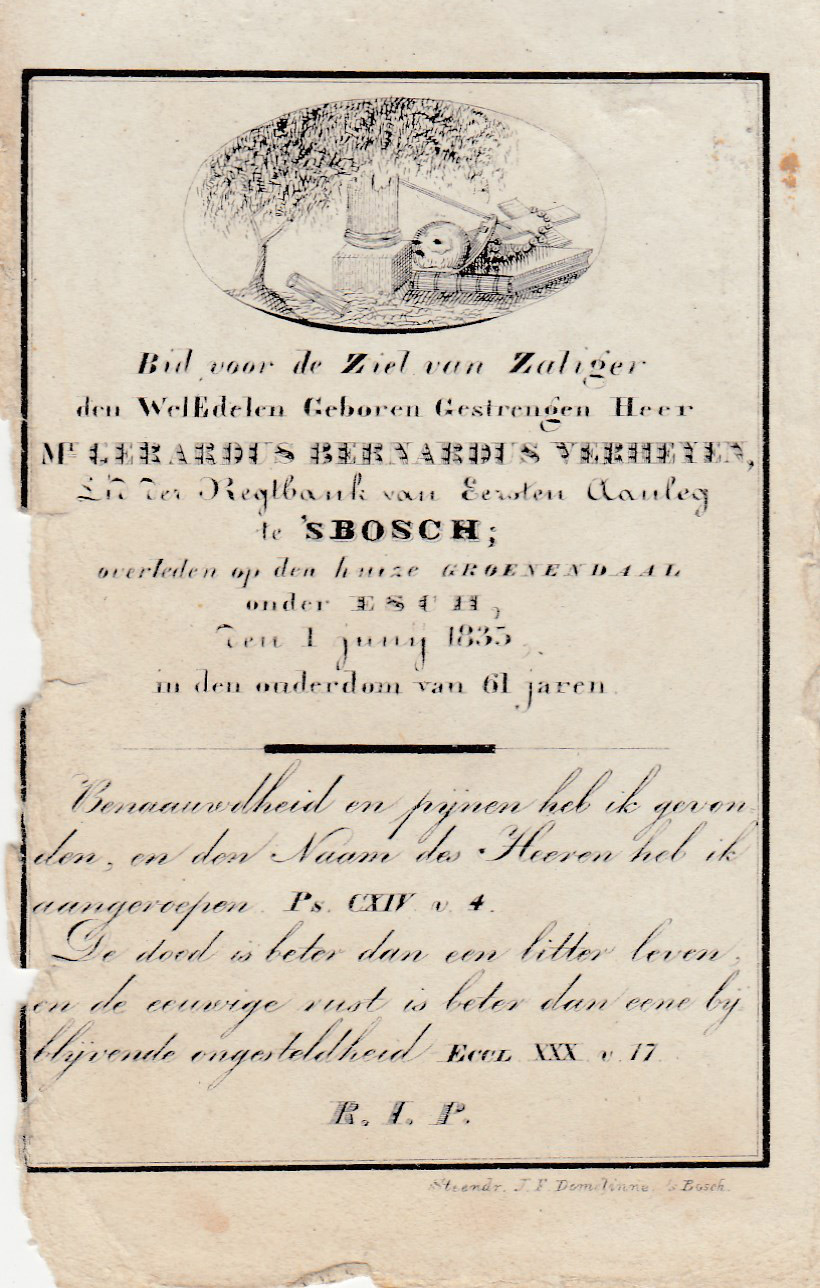 Bid voor de Ziel van Zaliger
den WelEdelen Geboren Gestrengen Heer
Mr GERARDUS BERNARDUS VERHEYEN,
Lid der Regtbank van Eersten Aanleg
te 'sBOSCH;
overleden op den huize GROENENDAAL
onder ESCH,
den 1 juny 1835,
in den ouderdom van 61 jaren.
Benaauwdheid en pijnen heb ik gevon
den, en den Naam des Heeren heb ik
aangeroepen. Ps. CXIV v. 4.
De dood is beter dan een bitter leven,
en de eeuwige rust is beter dan eene bij
blijvende ongesteldheid ECCL XXX v. 17.
R. I. P.
Steendr. J. F. Demelinne, 's Bosch.